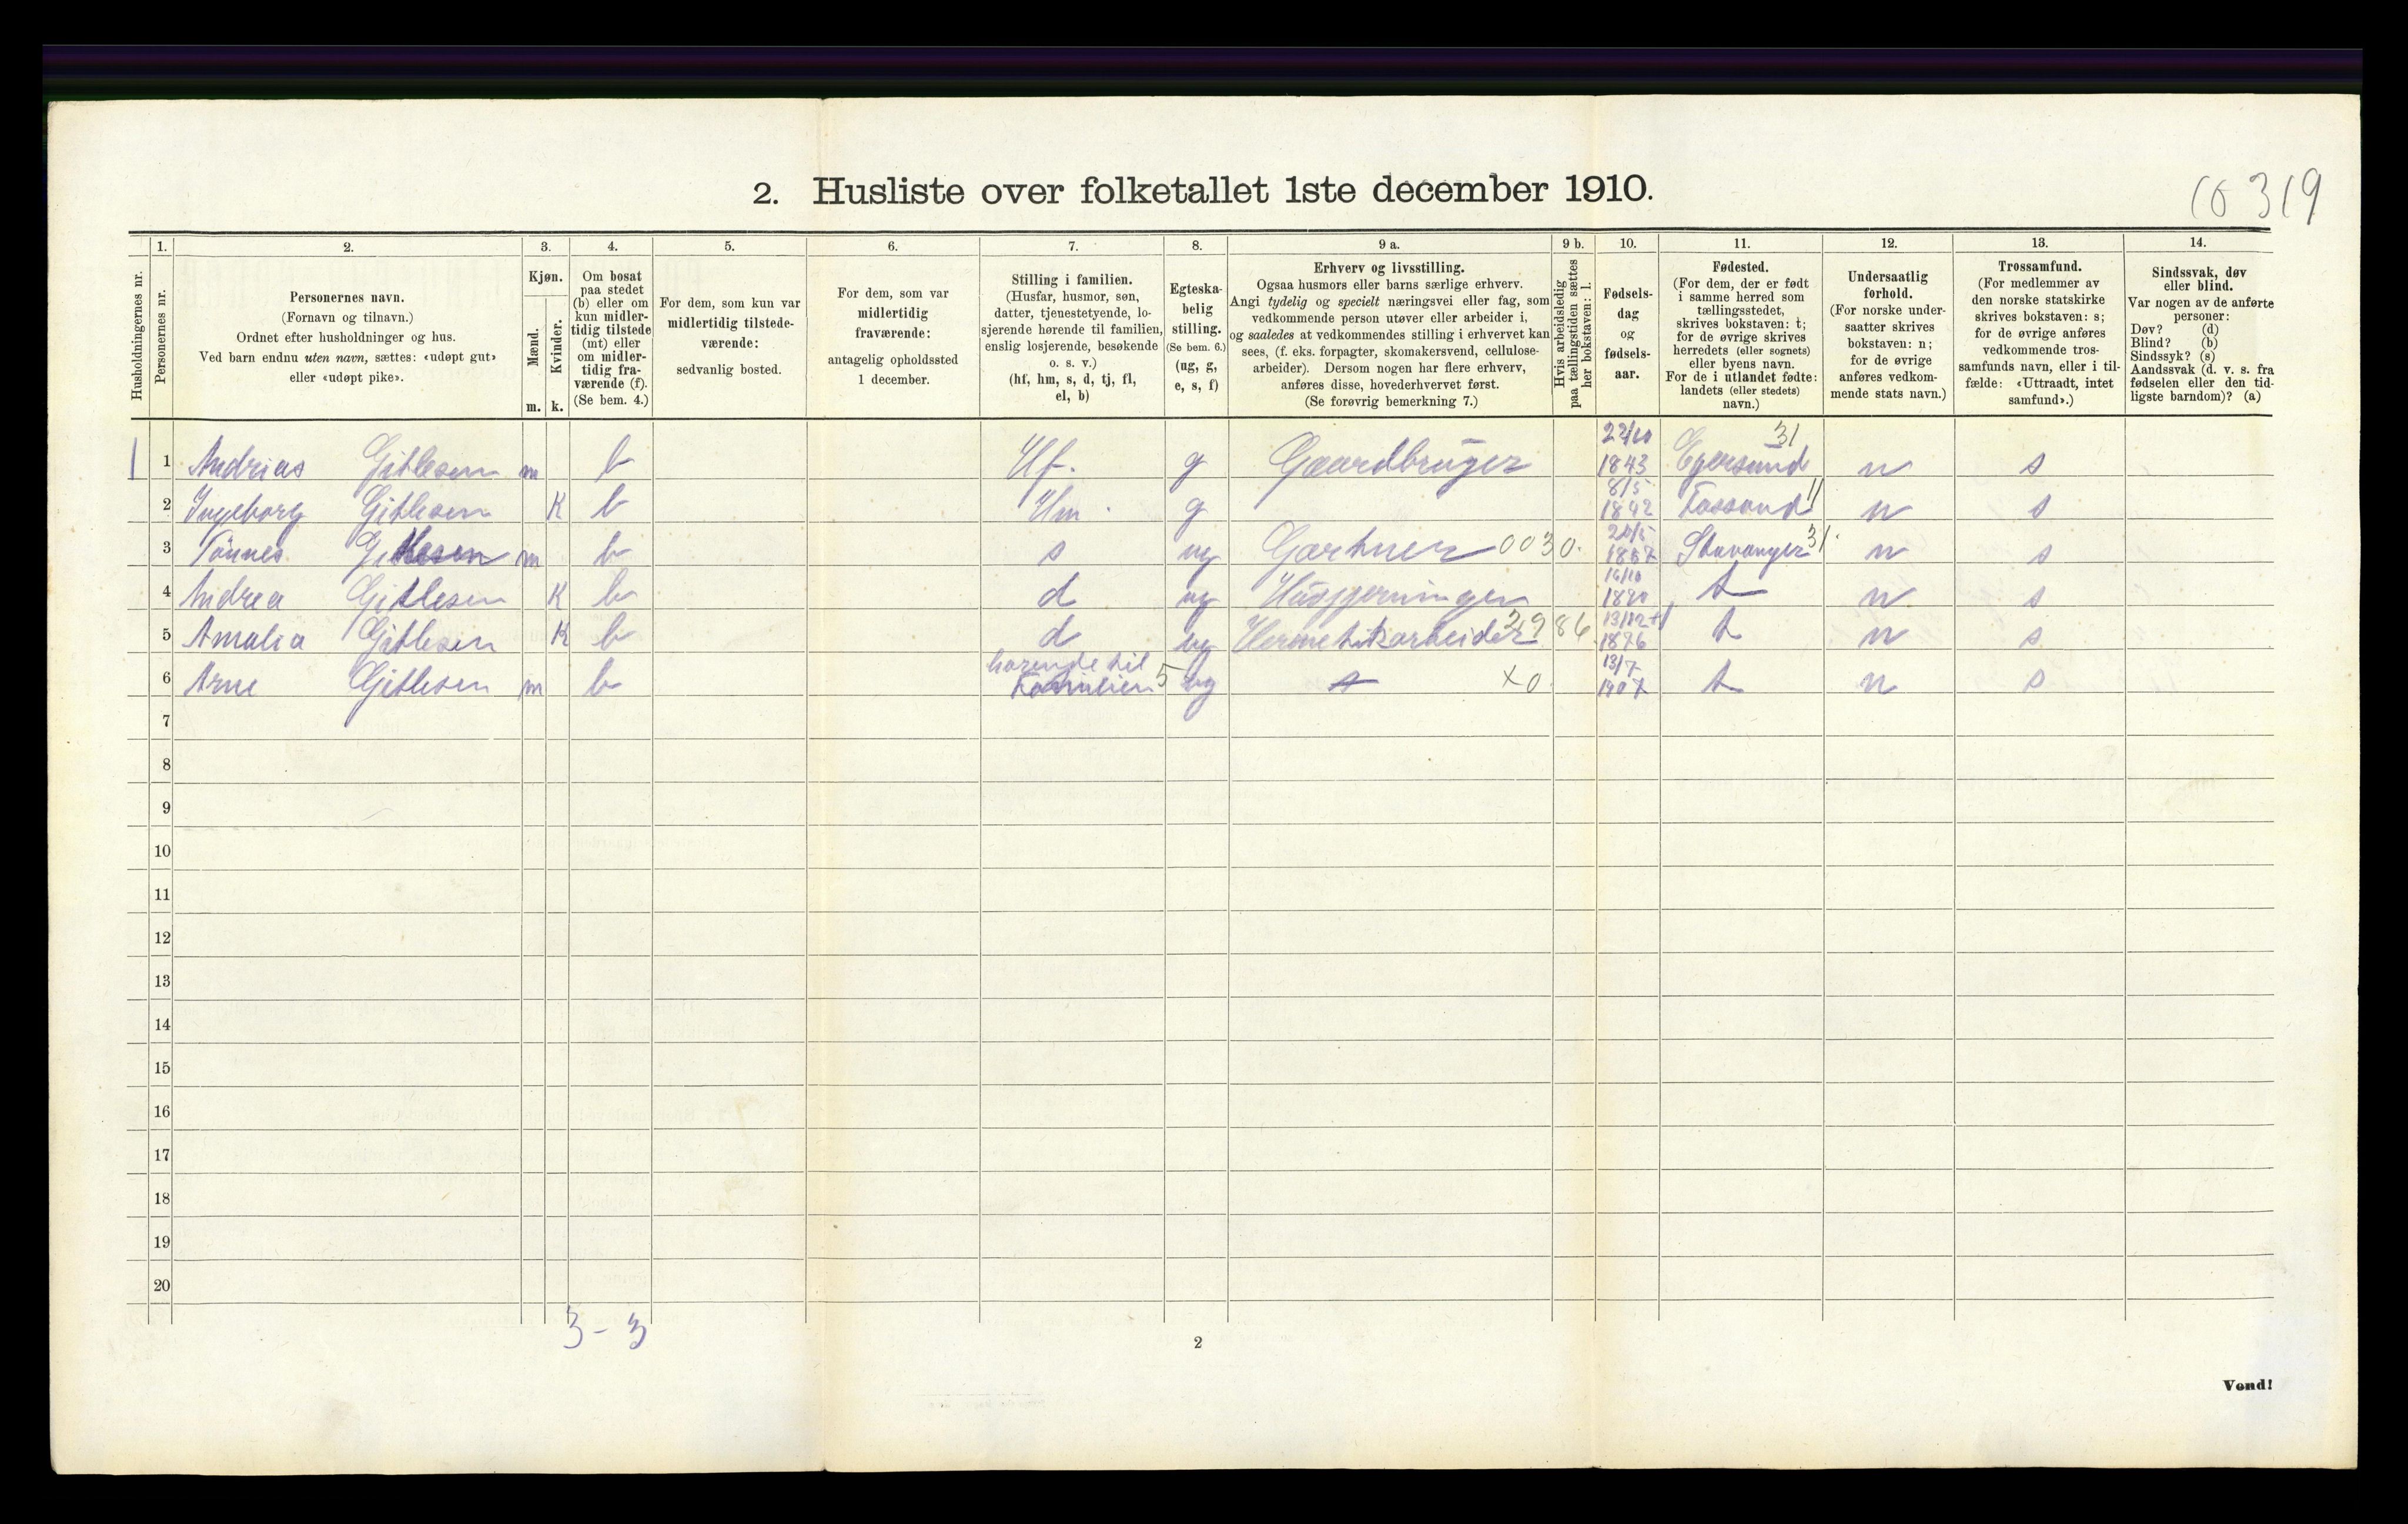 2. Husliste over folketallet 1ste december 1910.
1. 2. 3. 4. 5. 6. 7. 8. 9 a. 9 b. 10. 11. 12. 13. 14.
Husholdningernes nr.
Personernes nr.
Personernes navn.
(Fornavn og tilnavn.)
Ordnet efter husholdninger og hus.
Ved barn endnu uten navn, sættes: «udøpt gut»
eller «udøpt pike».
Kjøn.
Mænd.
Kvinder.
m. k.
Om bosat
paa stedet
(b) eller om
kun midler-
tidig tilstede
(mt) eller
om midler-
tidig fra-
værende (f).
(Se bem. 4.)
For dem, som kun var
midlertidig tilstede-
værende:
sedvanlig bosted.
For dem, som var
midlertidig
fraværende:
antagelig opholdssted
1 december.
Stilling i familien.
(Husfar, husmor, søn,
datter, tjenestetyende, lo-
sjerende hørende til familien,
enslig losjerende, besøkende
o. s. v.)
(hf, hm, s, d, tj, fl,
el, b)
Egteska-
belig
stilling.
(Se bem. 6.)
(ug, g,
e, s, f)
Erhverv og livsstilling.
Ogsaa husmors eller barns særlige erhverv.
Angi tydelig og specielt næringsvei eller fag, som
vedkommende person utøver eller arbeider i,
og saaledes at vedkommendes stilling i erhvervet kan
sees, (f. eks. forpagter, skomakersvend, cellulose-
arbeider). Dersom nogen har flere erhverv,
anføres disse, hovederhvervet først.
(Se forøvrig bemerkning 7.)
Hvis arbeidsledig
paa tællingstiden sættes
her bokstaven: l.
Fødsels-
dag
og
fødsels-
aar.
Fødested.
(For dem, der er født
i samme herred som
tællingsstedet,
skrives bokstaven: t;
for de øvrige skrives
herredets (eller sognets)
eller byens navn.
For de i utlandet fødte:
landets (eller stedets)
navn.)
Undersaatlig
forhold.
(For norske under-
saatter skrives
bokstaven: n;
for de øvrige
anføres vedkom-
mende stats navn.)
Trossamfund.
(For medlemmer av
den norske statskirke
skrives bokstaven: s;
for de øvrige anføres
vedkommende tros-
samfunds navn, eller i til-
fælde: «Uttraadt, intet
samfund».)
Sindssvak, døv
eller blind.
Var nogen av de anførte
personer:
Døv? (d)
Blind? (b)
Sindssyk? (s)
Aandssvak (d. v. s. fra
fødselen eller den tid-
ligste barndom)? (a)
1 1 Andrias Gitlesen m b Hf. g Gaardbruger 1843 Egersund 31 n s
2 Ingeborg Gitlesen K b Hm. g 8/5 1842 Fossand 11 n s
3 Tønnes Gitlesen m b s ug Gartner 0030. Stavanger 31 n s
4 Andrea Gitlesen K b d ug Husgjerningen t n s
5 Amalia Gitlesen K b d ug Hermetikarbeider 86 13/12 1876 t n s
6 Arne Gitlesen m b hørende til Familien 5 ug x0 13/7 1907 t n s
7
8
9
10
11
12
13
14
15
16
17
18
19
20
3 - 3
2
Vend!